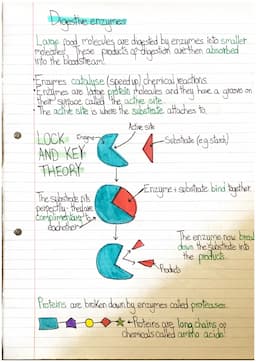 Digestive enzymes
Large food molecules are digested by enzymes into smaller
molecules. These products of digestion are then absorbed
into the bloodstream!
• Enzymes catalyse (speed up) chemical reactions.
• Enzymes are large protein molecules and they have a groove on
their surface called the active site.
• The active site is where the substrate attaches to.
LOCK
AND KEY
THEORY
Enzyme
Active site
Substrate (e.g starch)
The substrate fits
perfectly - they are
complimentary to
eachother
Enzyme + substrate bind together.
The enzyme now breaks
down the substrate into
the products.
Products
Proteins are broken down by enzymes called proteases.
Proteins are long chains of
chemicals called amino acids!